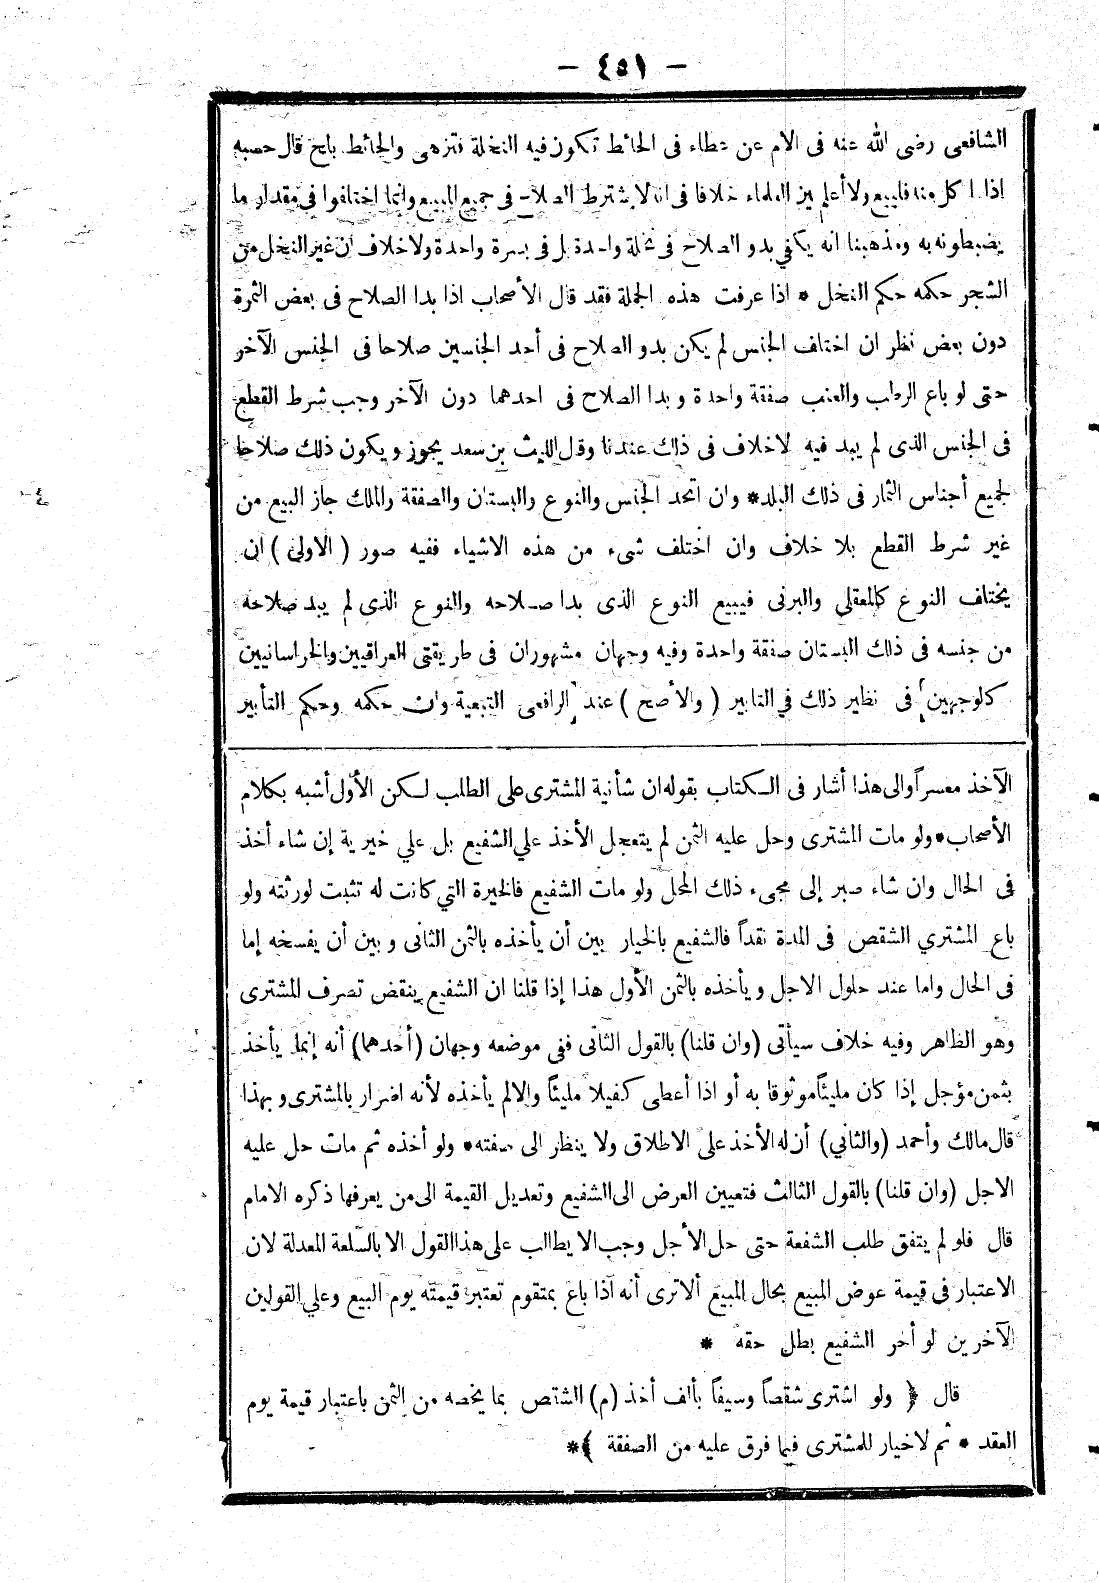 - ٤٥١ -
الشافعى رضى الله عنه فى الام عن عطاء فى الحائط تكون فيه النخلة فتزهى والحائط بلح قال حسبه
اذا اكل منه فليبع ولا أعلم بين العلماء خلافا فى انه لا يشترط الصلاح فى جميع المبيع وانما اختلفوا فى مقدار ما
يضبطونه به ومذهبنا انه يكفي بدو الصلاح فى نخلة واحدة بل فى بسرة واحدة ولا خلاف ان غير النخل من
الشجر حكمه حكم النخل * اذا عرفت هذه الجملة فقد قال الأصحاب اذا بدا الصلاح فى بعض الثمرة
دون بعض نظر ان اختلف الجنس لم يكن بدو الصلاح فى أحد الجنسين صلاحا فى الجنس الآخر
حتى لو باع الرطب والعنب صفقة واحدة وبدا الصلاح فى احدهما دون الآخر وجب شرط القطع
فى الجنس الذى لم يبد فيه لاخلاف فى ذلك عندنا وقال الليث بن سعد يجوز ويكون ذلك صلاحا
لجميع أجناس الثمار فى ذلك البلد * وان اتحد الجنس والنوع والبستان والصفقة والملك جاز البيع من
غير شرط القطع بلا خلاف وان اختلف شىء من هذه الاشياء ففيه صور ( الاولى ) ان
يختلف النوع كالمعقلي والبرنى فيبيع النوع الذى بدا صلاحه والنوع الذى لم يبد صلاحه
من جنسه فى ذلك البستان صفقة واحدة وفيه وجهان مشهوران فى طريقتى العراقيين والخراسانيين
كلوجهين فى نظير ذلك في التابير ( والأصح ) عند الرافعى التبعية وان حكمه وحكم التأبير
الآخذ معسراً والى هذا أشار فى الكتاب بقوله ان شأنية المشترى على الطلب لكن الأول أشبه بكلام
الأصحاب * ولو مات المشترى وحل عليه الثمن لم يتعجل الأخذ علي الشفيع بل علي خيرية إن شاء أخذ
فى الحال وان شاء صبر إلى مجىء ذلك المحل ولو مات الشفيع فالخيرة التي كانت له تثبت لورثته ولو
باع المشتري الشقص فى المدة نقداً فالشفيع بالخيار بين أن يأخذه بالثمن الثانى وبين أن يفسخه إما
فى الحال واما عند حلول الاجل ويأخذه بالثمن الأول هذا إذا قلنا ان الشفيع ينقض تصرف المشترى
وهو الظاهر وفيه خلاف سيأتى (وان قلنا) بالقول الثانى ففى موضعه وجهان (أحدهما) أنه إنما يأخذ
بثمن مؤجل إذا كان مليئاً موثوقا به أو اذا أعطى كفيلا مليئاً والا لم يأخذه لأنه اضرار بالمشترى وبهذا
قال مالك وأحمد (والثاني) أن له الأخذ على الاطلاق ولا ينظر الى صفته * ولو أخذه ثم مات حل عليه
الاجل (وان قلنا) بالقول الثالث فتعيين العرض الى الشفيع وتعديل القيمة الى من يعرفها ذكره الامام
قال فلو لم يتفق طلب الشفعة حتى حل الأجل وجب الا يطالب على هذا القول الا بالسلعة المعدلة لان
الاعتبار فى قيمة عوض المبيع بحال المبيع ألا ترى أنه اذا باع بمتقوم تعتبر قيمته يوم البيع وعلي القولين
الآخرين لو أخر الشفيع بطل حقه *
قال ﴿ ولو اشترى شقصاً وسيفاً بألف أخذ (م) الشقص بما يخصه من الثمن باعتبار قيمة يوم
العقد * ثم لا خيار للمشترى فيما فرق عليه من الصفقة ﴾ *